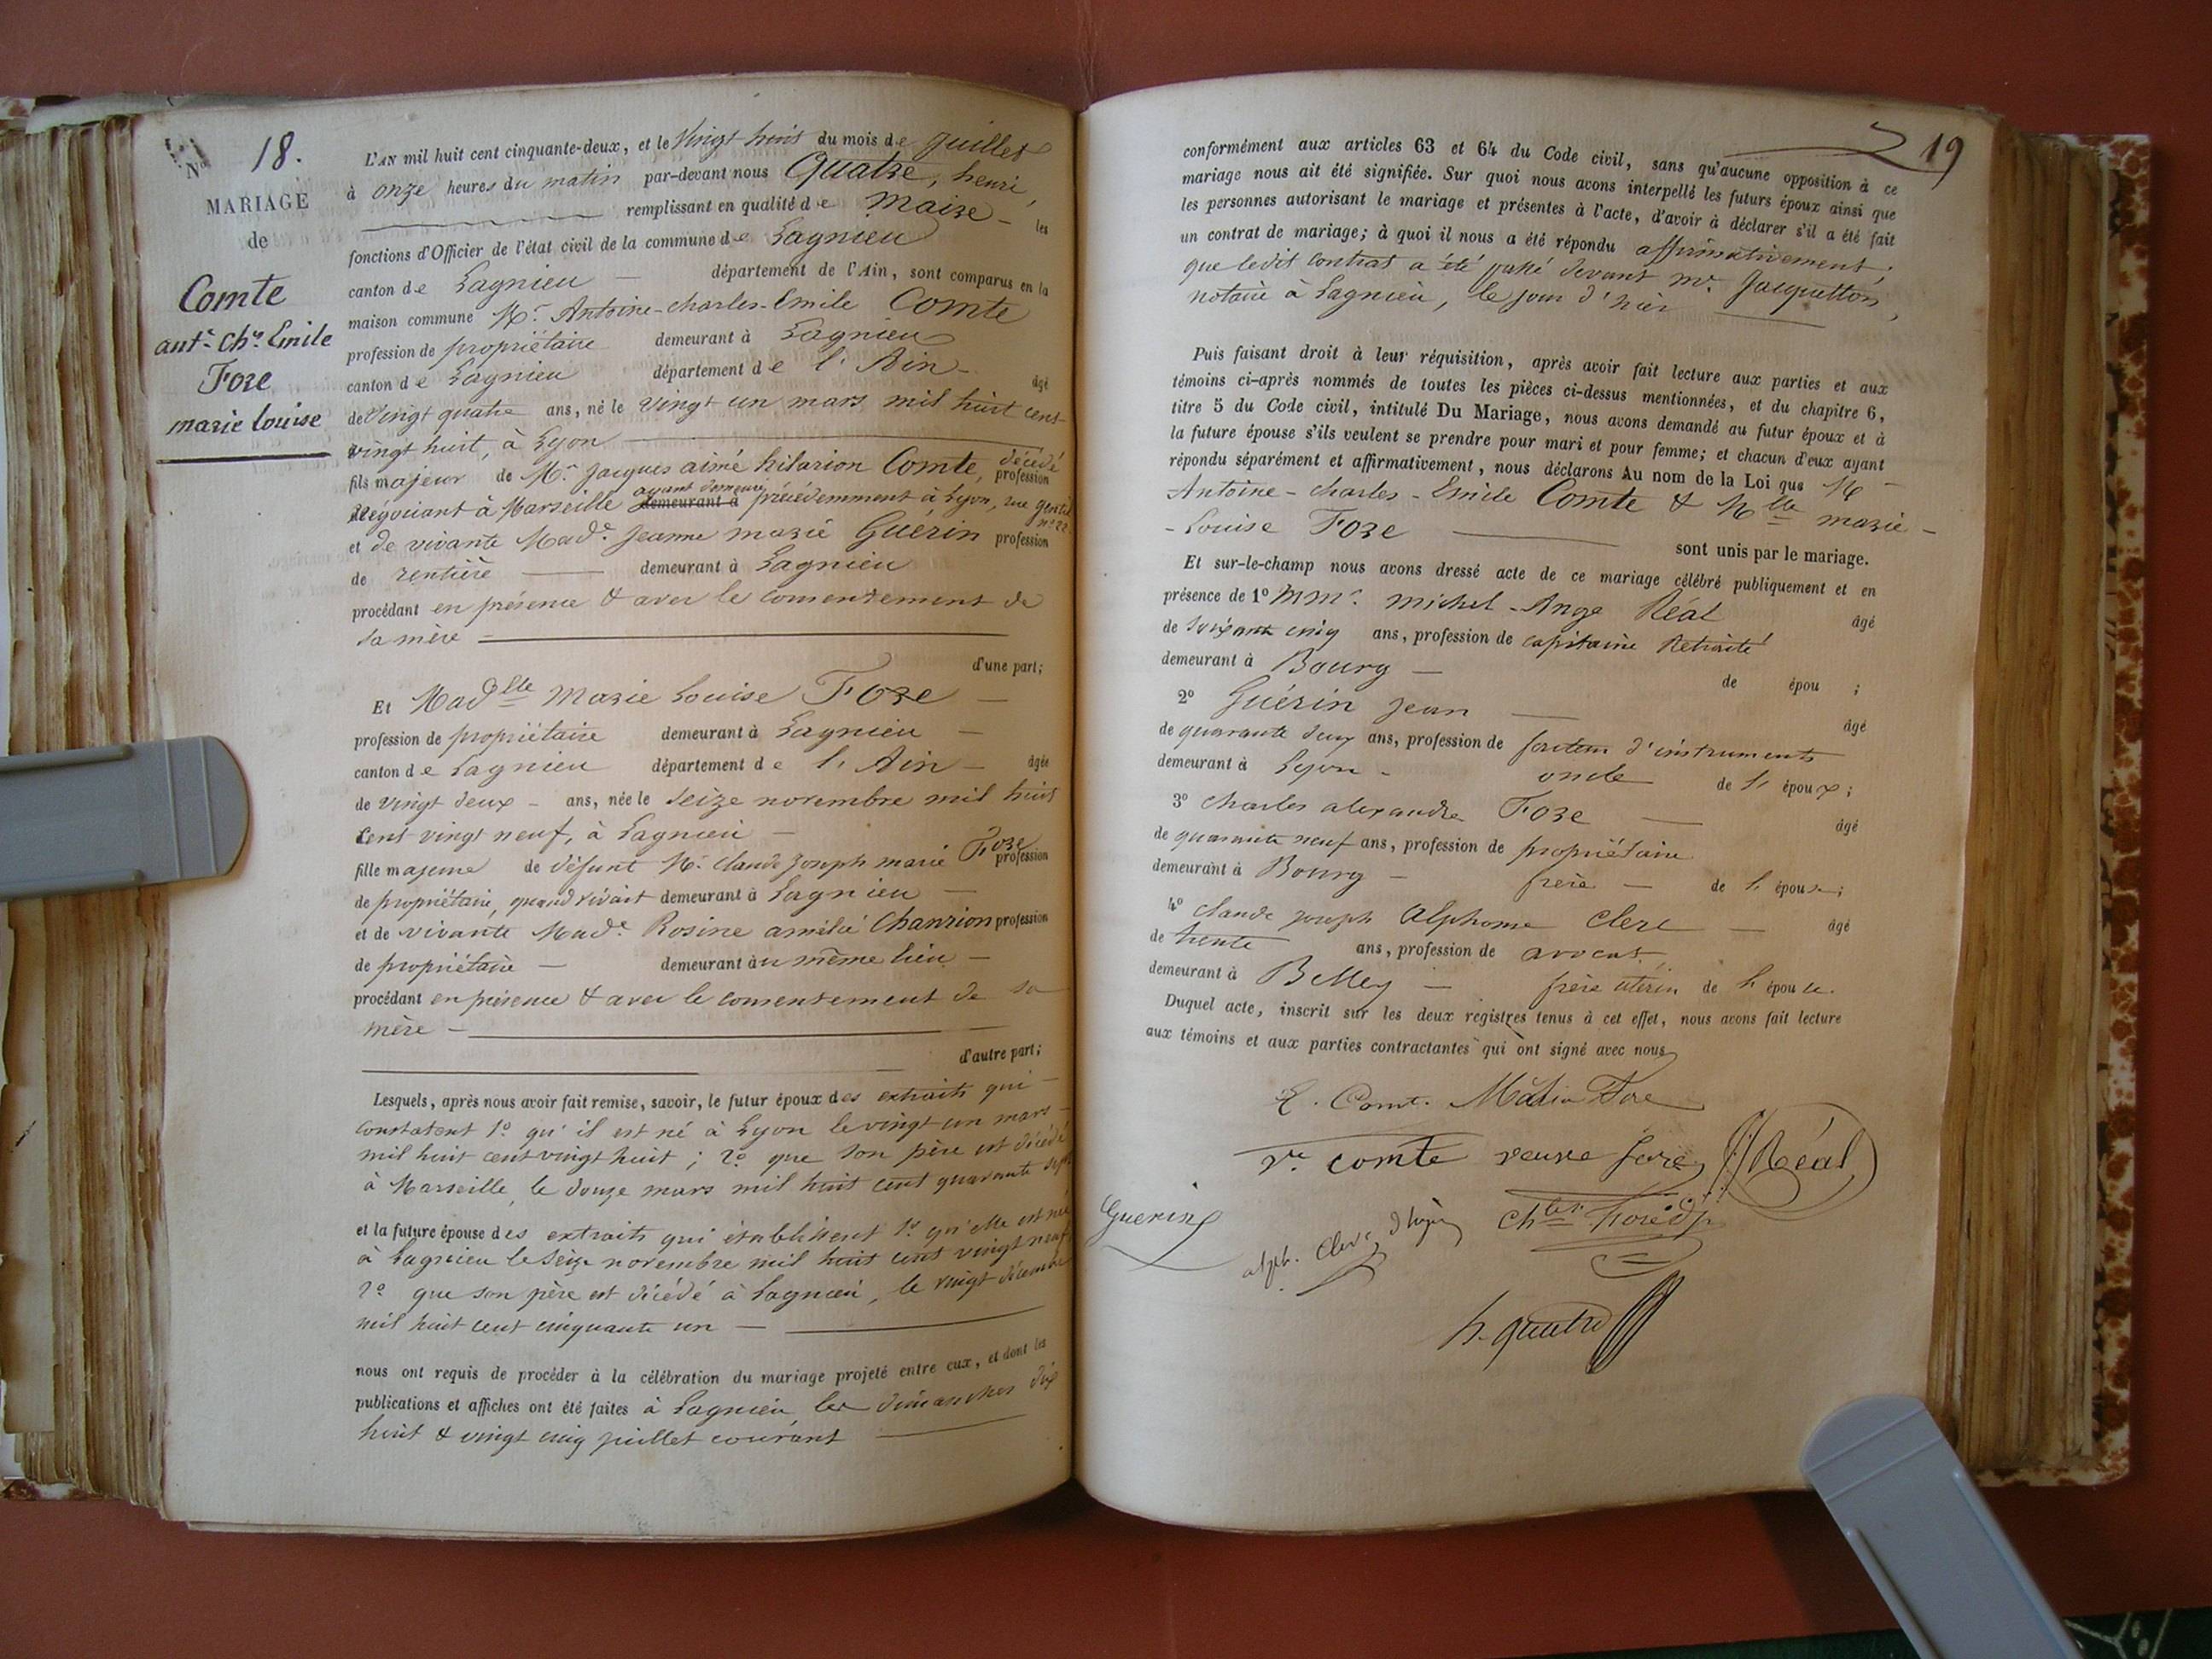 N° 18.
MARIAGE
de
Comte
ant.e Ch.s Emile
Fore
marie louise
L'AN mil huit cent cinquante-deux, et le Vingt huit du mois de Juillet
à onze heures du matin par-devant nous Quatre, henri,
remplissant en qualité de Maire les
fonctions d'Officier de l'état civil de la commune de Lagnieu
canton de Lagnieu département de l'Ain, sont comparus en la
maison commune Mr. Antoine-Charles-Emile Comte
profession de propriétaire demeurant à Lagnieu
canton de Lagnieu département de l'Ain âgé
de Vingt quatre ans, né le vingt un mars mil huit cent
vingt huit, à Lyon
fils majeur de Mr. Jacques aimé hilarion Comte, décédé profession
Négociant à Marseille ayant demeuré demeurant à précédemment à Lyon, rue gentil n° 22
et de vivante Made. Jeanne marie Guérin profession
de rentière demeurant à Lagnieu
procédant en présence & avec le consentement de
sa mère
d'une part;
Et Madelle Marie Louise Fore
profession de propriétaire demeurant à Lagnieu
canton de Lagnieu département de l'Ain âgée
de vingt deux ans, née le Seize novembre mil huit
cent vingt neuf, à Lagnieu
fille majeure de défunt Mr. Claude Joseph marie Fore profession
de propriétaire, quand vivait demeurant à Lagnieu
et de vivante Made. Rosine amélie Chanrion profession
de propriétaire demeurant au même lieu
procédant en présence & avec le consentement de sa
mère
d'autre part;
Lesquels, après nous avoir fait remise, savoir, le futur époux des extraits qui
constatent 1° qu'il est né à Lyon le vingt un mars
mil huit cent vingt huit; 2° que son père est décédé
à Marseille, le douze mars mil huit cent quarante sept
et la future épouse des extraits qui établissent 1° qu'elle est née
à Lagnieu le Seize novembre mil huit cent vingt neuf
2° que son père est décédé à Lagnieu, le vingt décembre
mil huit cent cinquante un
nous ont requis de procéder à la célébration du mariage projeté entre eux, et dont les
publications et affiches ont été faites à Lagnieu, les dimanches dix
huit & vingt cinq juillet courant
19
conformément aux articles 63 et 64 du Code civil, sans qu'aucune opposition à ce
mariage nous ait été signifiée. Sur quoi nous avons interpellé les futurs époux ainsi que
les personnes autorisant le mariage et présentes à l'acte, d'avoir à déclarer s'il a été fait
un contrat de mariage; à quoi il nous a été répondu affirmativement,
que ledit contrat a été passé devant Mr. Jacquetton,
notaire à Lagnieu, le jour d'hier
Puis faisant droit à leur réquisition, après avoir fait lecture aux parties et aux
témoins ci-après nommés de toutes les pièces ci-dessus mentionnées, et du chapitre 6,
titre 5 du Code civil, intitulé Du Mariage, nous avons demandé au futur époux et à
la future épouse s'ils veulent se prendre pour mari et pour femme; et chacun d'eux ayant
répondu séparément et affirmativement, nous déclarons Au nom de la Loi que M
Antoine-Charles-Emile Comte & Mlle marie-
-Louise Fore sont unis par le mariage.
Et sur-le-champ nous avons dressé acte de ce mariage célébré publiquement et en
présence de 1° MMrs. Michel-Ange Réal âgé
de soixante cinq ans, profession de capitaine Retraité
demeurant à Bourg de épou ;
2° Guérin Jean âgé
de quarante deux ans, profession de facteur d'instruments
demeurant à Lyon oncle de l'époux;
3° Charles alexandre Fore âgé
de quarante neuf ans, profession de propriétaire
demeurant à Bourg frère de l'épouse;
4° Claude Joseph Alphonse Clerc âgé
de trente ans, profession de avocat
demeurant à Belley frère utérin de l'épouse.
Duquel acte, inscrit sur les deux registres tenus à cet effet, nous avons fait lecture
aux témoins et aux parties contractantes qui ont signé avec nous
E. Comte Fore
Ve comte veuve fore Réal
Guerin alph. Clerc Chles Fore
h. quatre